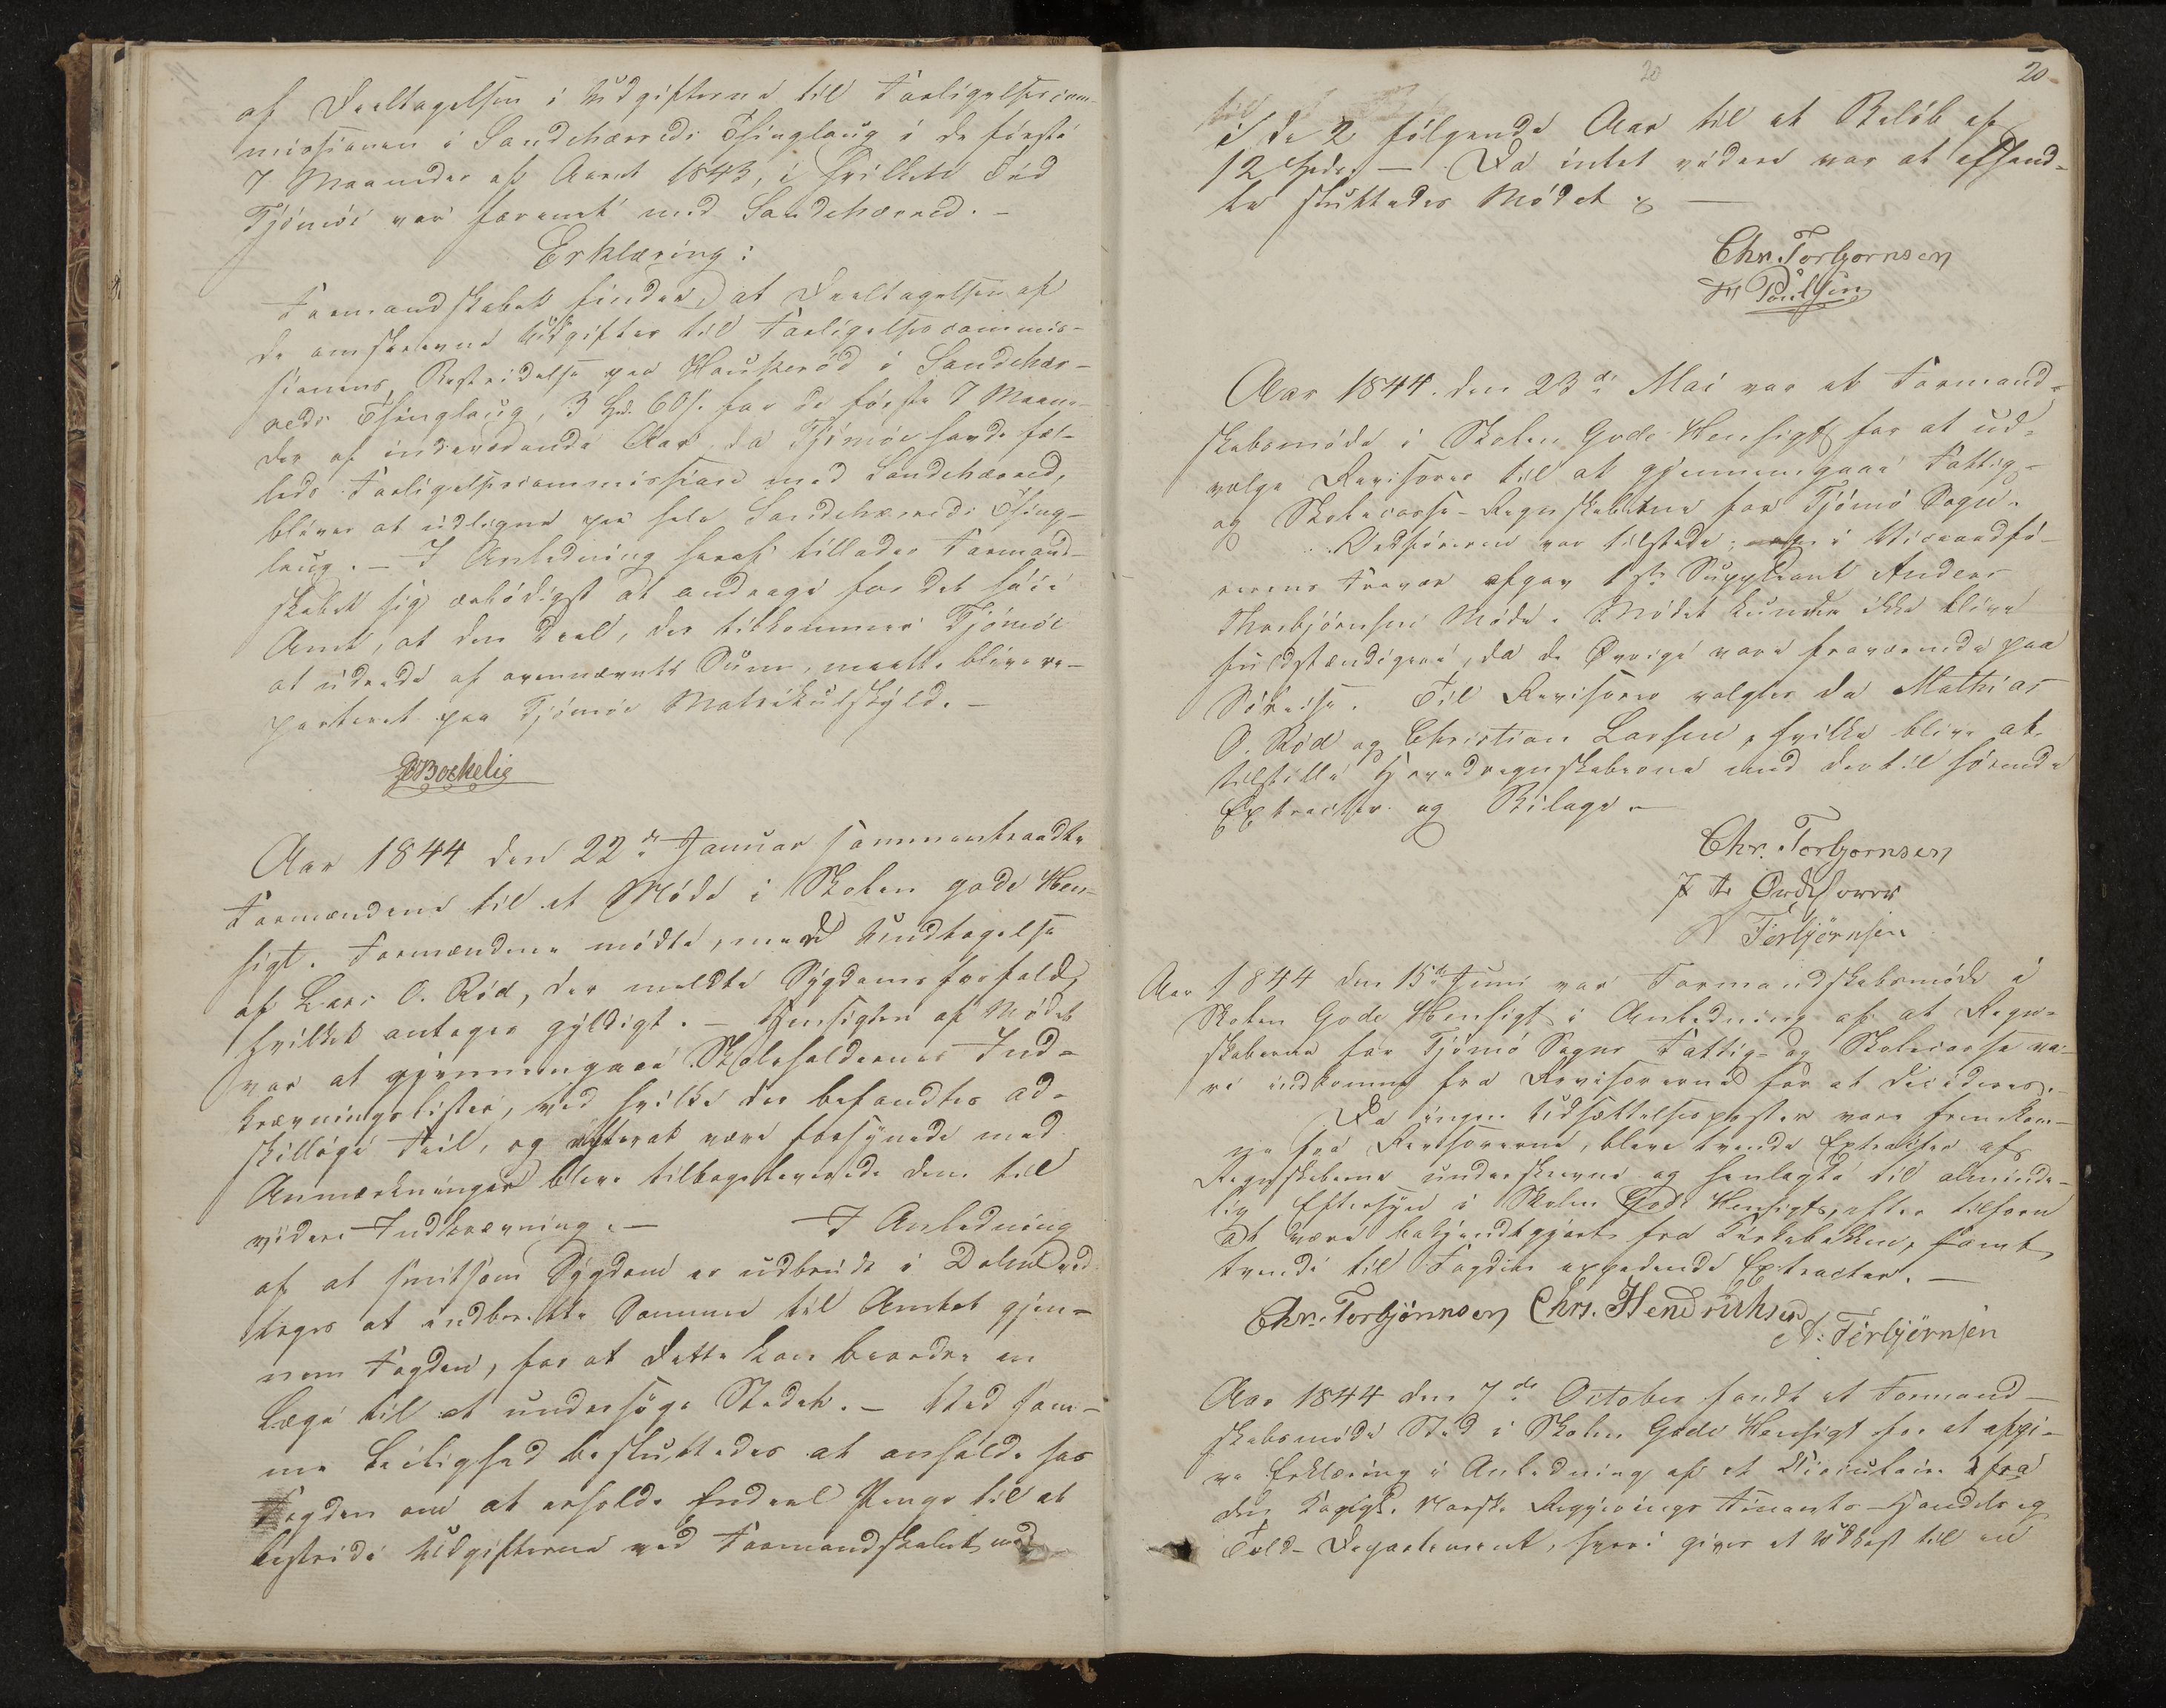 af Deeltagelsen i Udgifterne til Forligelsescom-
missionen i Sandehærreds Thinglaug i de første
7 Maaneder af Aaret 1843, i hvilken Tid
Tjömöe var forenet med Sandehærred. -
Erklæring:
Formandskabet finder, at Deeltagelsen af
de omskrevne Udgifter til Forligelsescommis-
sionens Bestridelse paa Haukeröd i Sandehær-
reds Thinglaug, 3 Spd. 60 s. for de første 7 Maane-
der af indeværende Aar da Tjömöe havde fæl-
leds Forligelsescommission med Sandehærred,
bliver at udligne paa hele Sandehærreds Thing-
laug. - I Anledning heraf tillader Formand-
skabet sig ærbødigst at andrage for det høie
Amt, at den Deel, der tilkommer Tjömöe
at udrede af ovennævnte Sum, maatte blive re-
parteret paa Tjömöe Matrikulskyld. -
Bockelie
Aar 1844 den 22de Januar sammentraadte
Formændene til et Møde i Skolen gode Hen-
sigt. Formændene mødte, med Undtagelse
af Lars O. Röd, der meldte Sygdomsforfald,
hvilket antages gyldigt. - Hensigten af Mødet
var at gjennemgaae Skoleholdernes Ind-
krævningslister, ved hvilke der befandtes ad-
skillige Feil, og efterat være forsynede med
Anmærkninger bleve tilbageleverede dem til
videre Indkrævning. - I Anledning
af at smitsom Sygdom er udbrudt i
tages at indberette Samme til Amtet gjen-
nem Fogden, for at dette kan beordre en
Læge til at undersøge Stedet. - Ved sam-
me Leilighed besluttedes at anholde hos
Fogden om at erholde Endeel Penge til at
bestride Udgifterne ved Formandskabet
20
20
i de 2 følgende Aar til et Beløb af
12 Spd. - Da intet videre var at afhand-
le sluttedes Mødet
Chr. Torbjornsen
H Paulsen
Aar 1844 den 23de Mai var et Formand-
skabsmøde i Skolen Gode Hensigt for at ud-
vælge Revisorer til at gjennemgaae Fattig-
og Skolecasse-Regnskaberne for Tjömö Sogn.
Ordføreren var tilstede; i Viceordfø-
rerens Fravær afgav 1ste Suppleant Anders
Thorbjörnsen Møde. Mødet kunde ikke blive
fuldstændigere, da de Øvrige vare fraværende paa
Søreise. Til Revisorer valgtes da Mathias
O. Röd og Christian Larsen, hvilke blive at
tilstille Hovedregnskaberne med dertil hørende
Extracter og Bilage. -
Chr. Torbjornsen
Ordforer
Torbjörnsen
Aar 1844 den 15de Juni var Formandskabsmøde i
Skolen Gode Hensigt i Anledning af at Regn-
skaberne for Tjömö Sogns Fattig- og Skolecasse va-
re indkomne fra Revisorerne for at decideres.
Da ingen Udsættelsesposter vare fremkom-
ne fra Revisorerne, bleve tvende Extracter af
Regnskaberne underskrevne og henlagte til alminde-
lig Eftersyn i Skolen Gode Hensigt, efter tilforn
at være bekjendtgjort fra Kirkebakken, samt
tvende til Fogden expederede Extracter. -
Chr. Torbjörnsen Chrs. Hendrichsen
A. Torbjörnsen
Aar 1844 den 7de October fandt et Formand-
skabsmøde Sted i Skolen Gode Hensigt for at afgi-
ve Erklæring i Anledning af et Circulaire fra
den Kongl. Norske Regjerings Finants- Handels og
Told- Departement, hvori gives et Udkast til en